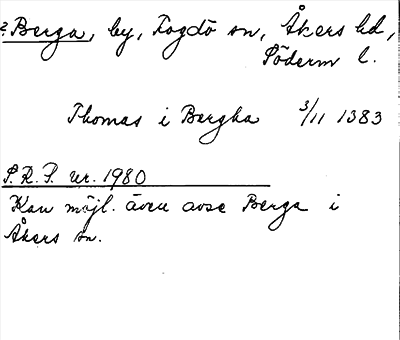 ? Berga, by, Fogdö sn, Åkers hd,
Söderm l.
Thomas i Bergha 3/11 1383
S.R.P. nr. 1980
Kan möjl. även avse Berga i
Åkers sn.